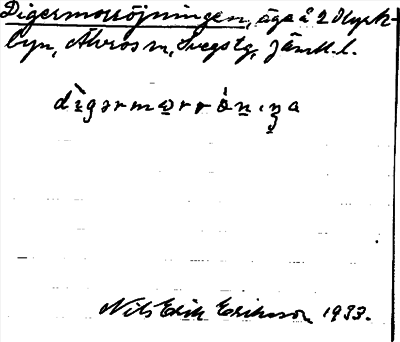 Digermorröjningen, äga å 2 Kyrk-
byn, Älvros sn, Svegs tg, Jämtl. l.
dìgərmɷrrö́nıŋa
Nils Erik Eriksson 1933.